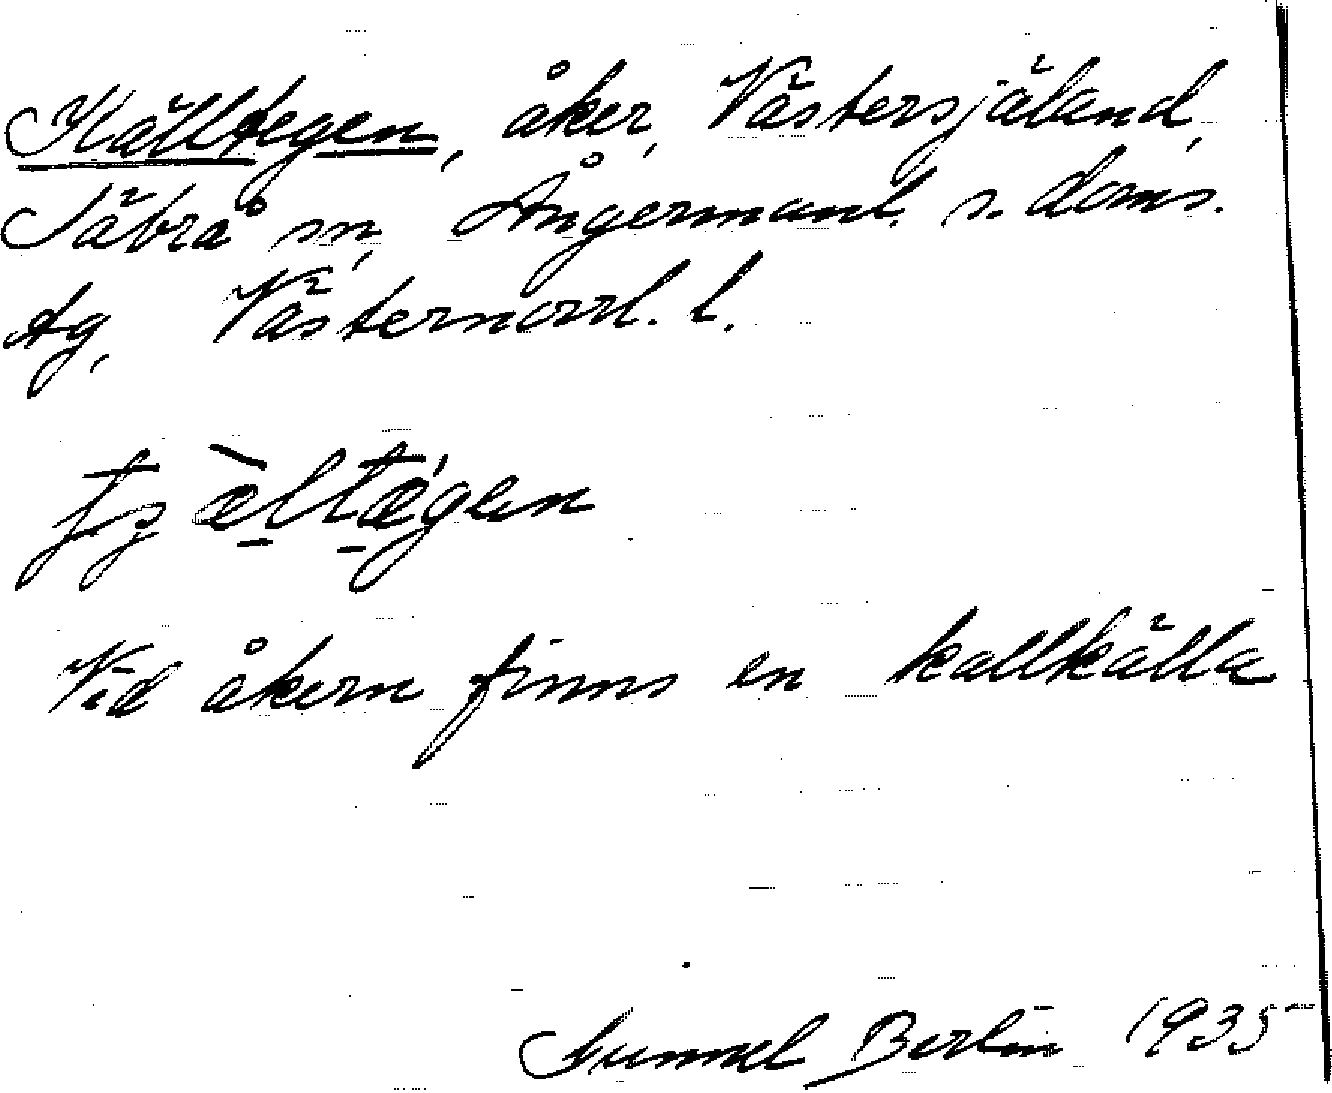 Källtegen, åker, Västersjäland,
Säbrå sn, Ångermanl. s. doms.
tg, Västernorrl. l.
Vid åkern finns en kallkälla
Gunnel Berlin 1935